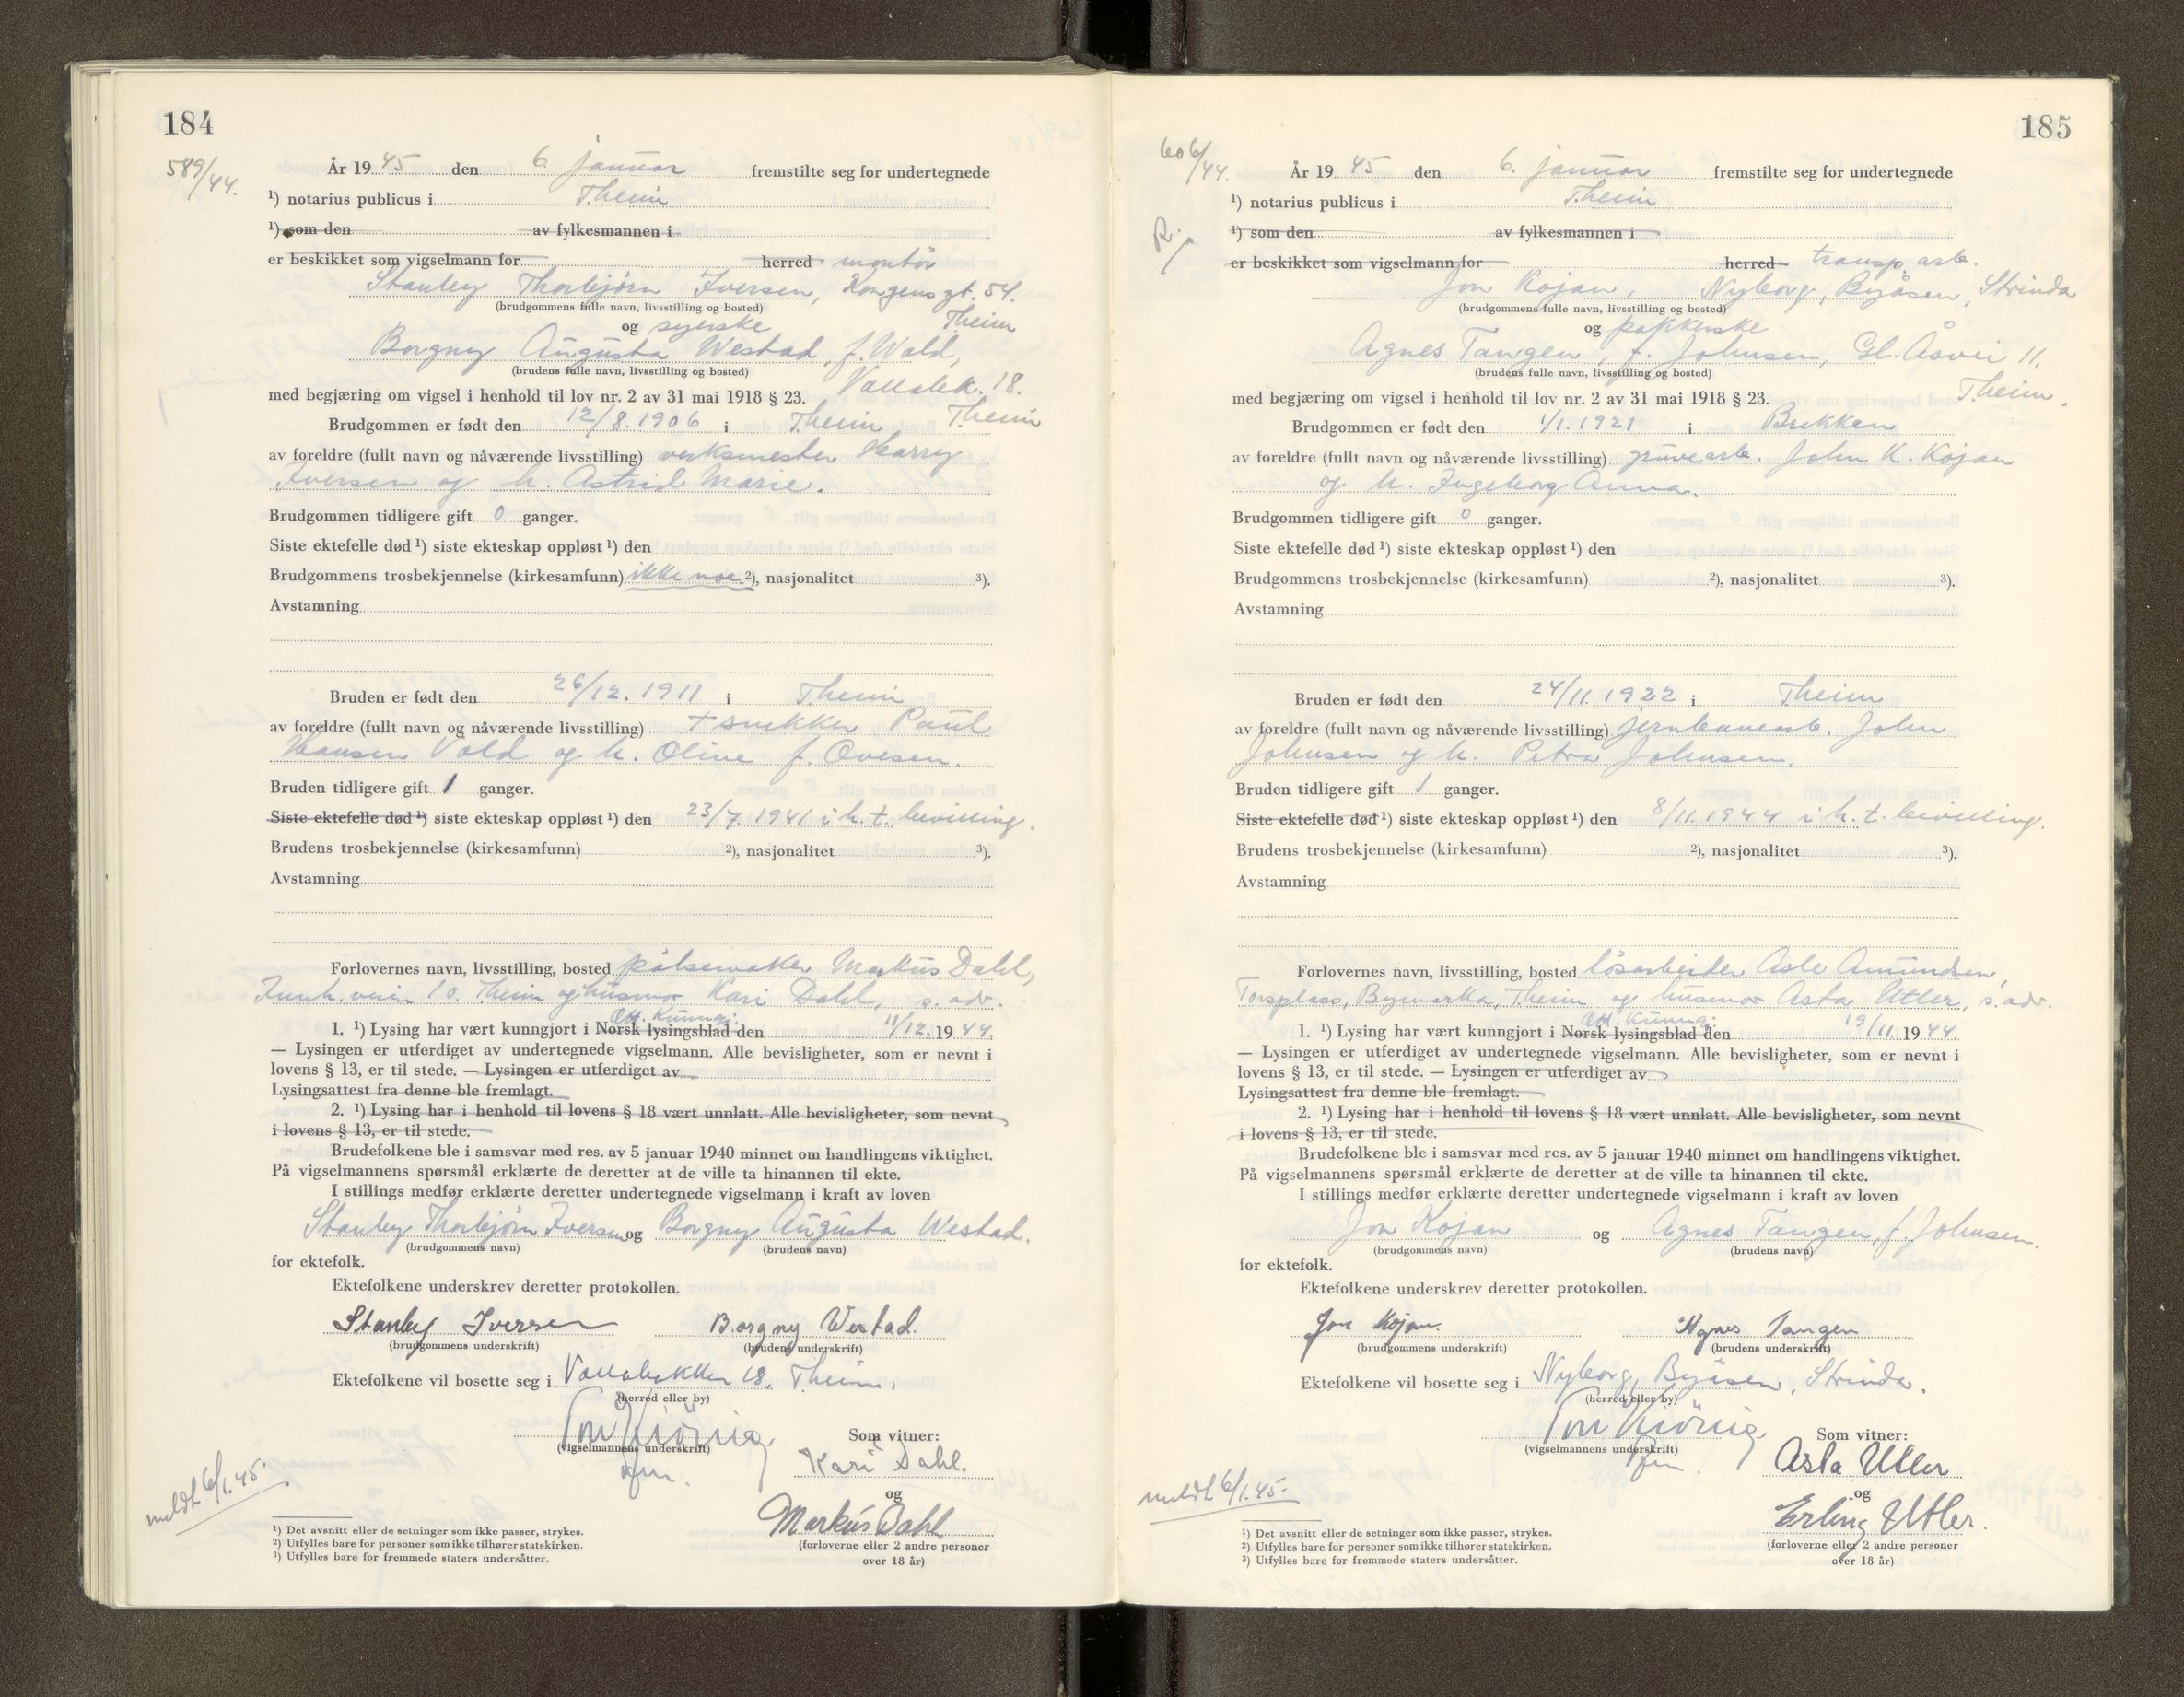 184
589/44.
År 19 45 den 6. januar fremstilte seg for undertegnede
¹) notarius publicus i Theim
¹) som den av fylkesmannen i
er beskikket som vigselmann for herred montör
Stanley Thorbjørn Iversen, Kongens gt. 54.
(brudgommens fulle navn, livsstilling og bosted) Theim
og syerske
Borgny Augusta Westad, f. Wold,
(brudens fulle navn, livsstilling og bosted)
med begjæring om vigsel i henhold til lov nr. 2 av 31 mai 1918 § 23. 18.
Theim
Brudgommen er født den 12/8. 1906 i Theim
av foreldre (fullt navn og nåværende livsstilling) verksmester Harry
Iversen og h. Astrid Marie.
Brudgommen tidligere gift 0 ganger.
Siste ektefelle død ¹) siste ekteskap oppløst ¹) den
Brudgommens trosbekjennelse (kirkesamfunn) ikke noe ²), nasjonalitet ³).
Avstamning
Bruden er født den 26/12. 1911 i Theim
av foreldre (fullt navn og nåværende livsstilling) + snekker Paul
Hansen Vold og h. Oline f. Ovesen.
Bruden tidligere gift 1 ganger.
Siste ektefelle død ¹) siste ekteskap oppløst ¹) den 23/7. 1941 i h. t. bevilling.
Brudens trosbekjennelse (kirkesamfunn) ²), nasjonalitet ³).
Avstamning
Forlovernes navn, livsstilling, bosted pölsemaker Markus Dahl,
veien 10. Theim og husmor Kari Dahl, s. adr.
Off. Kunngj.
1. ¹) Lysing har vært kunngjort i Norsk lysingsblad den 11/12. 19 44.
— Lysingen er utferdiget av undertegnede vigselmann. Alle bevisligheter, som er nevnt i
lovens § 13, er til stede. — Lysingen er utferdiget av
Lysingsattest fra denne ble fremlagt.
2. ¹) Lysing har i henhold til lovens § 18 vært unnlatt. Alle bevisligheter, som nevnt
i lovens § 13, er til stede.
Brudefolkene ble i samsvar med res. av 5 januar 1940 minnet om handlingens viktighet.
På vigselmannens spørsmål erklærte de deretter at de ville ta hinannen til ekte.
I stillings medfør erklærte deretter undertegnede vigselmann i kraft av loven
Stanley Thorbjörn Iversen og Borgny Augusta Westad.
(brudgommens navn) (brudens navn)
for ektefolk.
Ektefolkene underskrev deretter protokollen.
Stanley Iversen Borgny Westad.
(brudgommens underskrift) (brudens underskrift)
Ektefolkene vil bosette seg i Vollabakken 18. Theim.
(herred eller by)
(vigselmannens underskrift)
Som vitner:
Kari Dahl.
og
meldt 6/1.45.
Markus Dahl
(forloverne eller 2 andre personer
over 18 år)
¹) Det avsnitt eller de setninger som ikke passer, strykes.
²) Utfylles bare for personer som ikke tilhører statskirken.
³) Utfylles bare for fremmede staters undersåtter.
185
606/44.
R.
År 19 45 den 6. januar fremstilte seg for undertegnede
¹) notarius publicus i Theim
¹) som den av fylkesmannen i
er beskikket som vigselmann for herred transp. arb.
Jon Kojan, Nyborg, Byåsen, Strinda
(brudgommens fulle navn, livsstilling og bosted)
og pakkerske
Agnes Tangen, f. Johnsen, Gl. Åsvei 11,
(brudens fulle navn, livsstilling og bosted)
med begjæring om vigsel i henhold til lov nr. 2 av 31 mai 1918 § 23. Theim.
Brudgommen er født den 1/1. 1921 i Brekken
av foreldre (fullt navn og nåværende livsstilling) gruvearb. John K. Kojan
og h. Ingeborg Anna.
Brudgommen tidligere gift 0 ganger.
Siste ektefelle død ¹) siste ekteskap oppløst ¹) den
Brudgommens trosbekjennelse (kirkesamfunn) ²), nasjonalitet ³).
Avstamning
Bruden er født den 24/11. 1922 i Theim
av foreldre (fullt navn og nåværende livsstilling) jernbanearb. John
Johnsen og h. Petra Johnsen.
Bruden tidligere gift 1 ganger.
Siste ektefelle død ¹) siste ekteskap oppløst ¹) den 8/11. 1944 i h. t. bevilling.
Brudens trosbekjennelse (kirkesamfunn) ²), nasjonalitet ³).
Avstamning
Forlovernes navn, livsstilling, bosted lösarbeider Asle Amundsen,
Torsplass, Bymarka, Theim og husmor Asta Utler, s. adr.
Off. Kunngj.
1. ¹) Lysing har vært kunngjort i Norsk lysingsblad den 19/11. 19 44.
— Lysingen er utferdiget av undertegnede vigselmann. Alle bevisligheter, som er nevnt i
lovens § 13, er til stede. — Lysingen er utferdiget av
Lysingsattest fra denne ble fremlagt.
2. ¹) Lysing har i henhold til lovens § 18 vært unnlatt. Alle bevisligheter, som nevnt
i lovens § 13, er til stede.
Brudefolkene ble i samsvar med res. av 5 januar 1940 minnet om handlingens viktighet.
På vigselmannens spørsmål erklærte de deretter at de ville ta hinannen til ekte.
I stillings medfør erklærte deretter undertegnede vigselmann i kraft av loven
Jon Kojan og Agnes Tangen, f. Johnsen.
(brudgommens navn) (brudens navn)
for ektefolk.
Ektefolkene underskrev deretter protokollen.
Jon Kojan. Agnes Tangen
(brudgommens underskrift) (brudens underskrift)
Ektefolkene vil bosette seg i Nyborg, Byåsen, Strinda.
(herred eller by)
(vigselmannens underskrift)
Som vitner:
Asta Utler
og
meldt 6/1.45.
Erling Utler.
(forloverne eller 2 andre personer
over 18 år)
¹) Det avsnitt eller de setninger som ikke passer, strykes.
²) Utfylles bare for personer som ikke tilhører statskirken.
³) Utfylles bare for fremmede staters undersåtter.